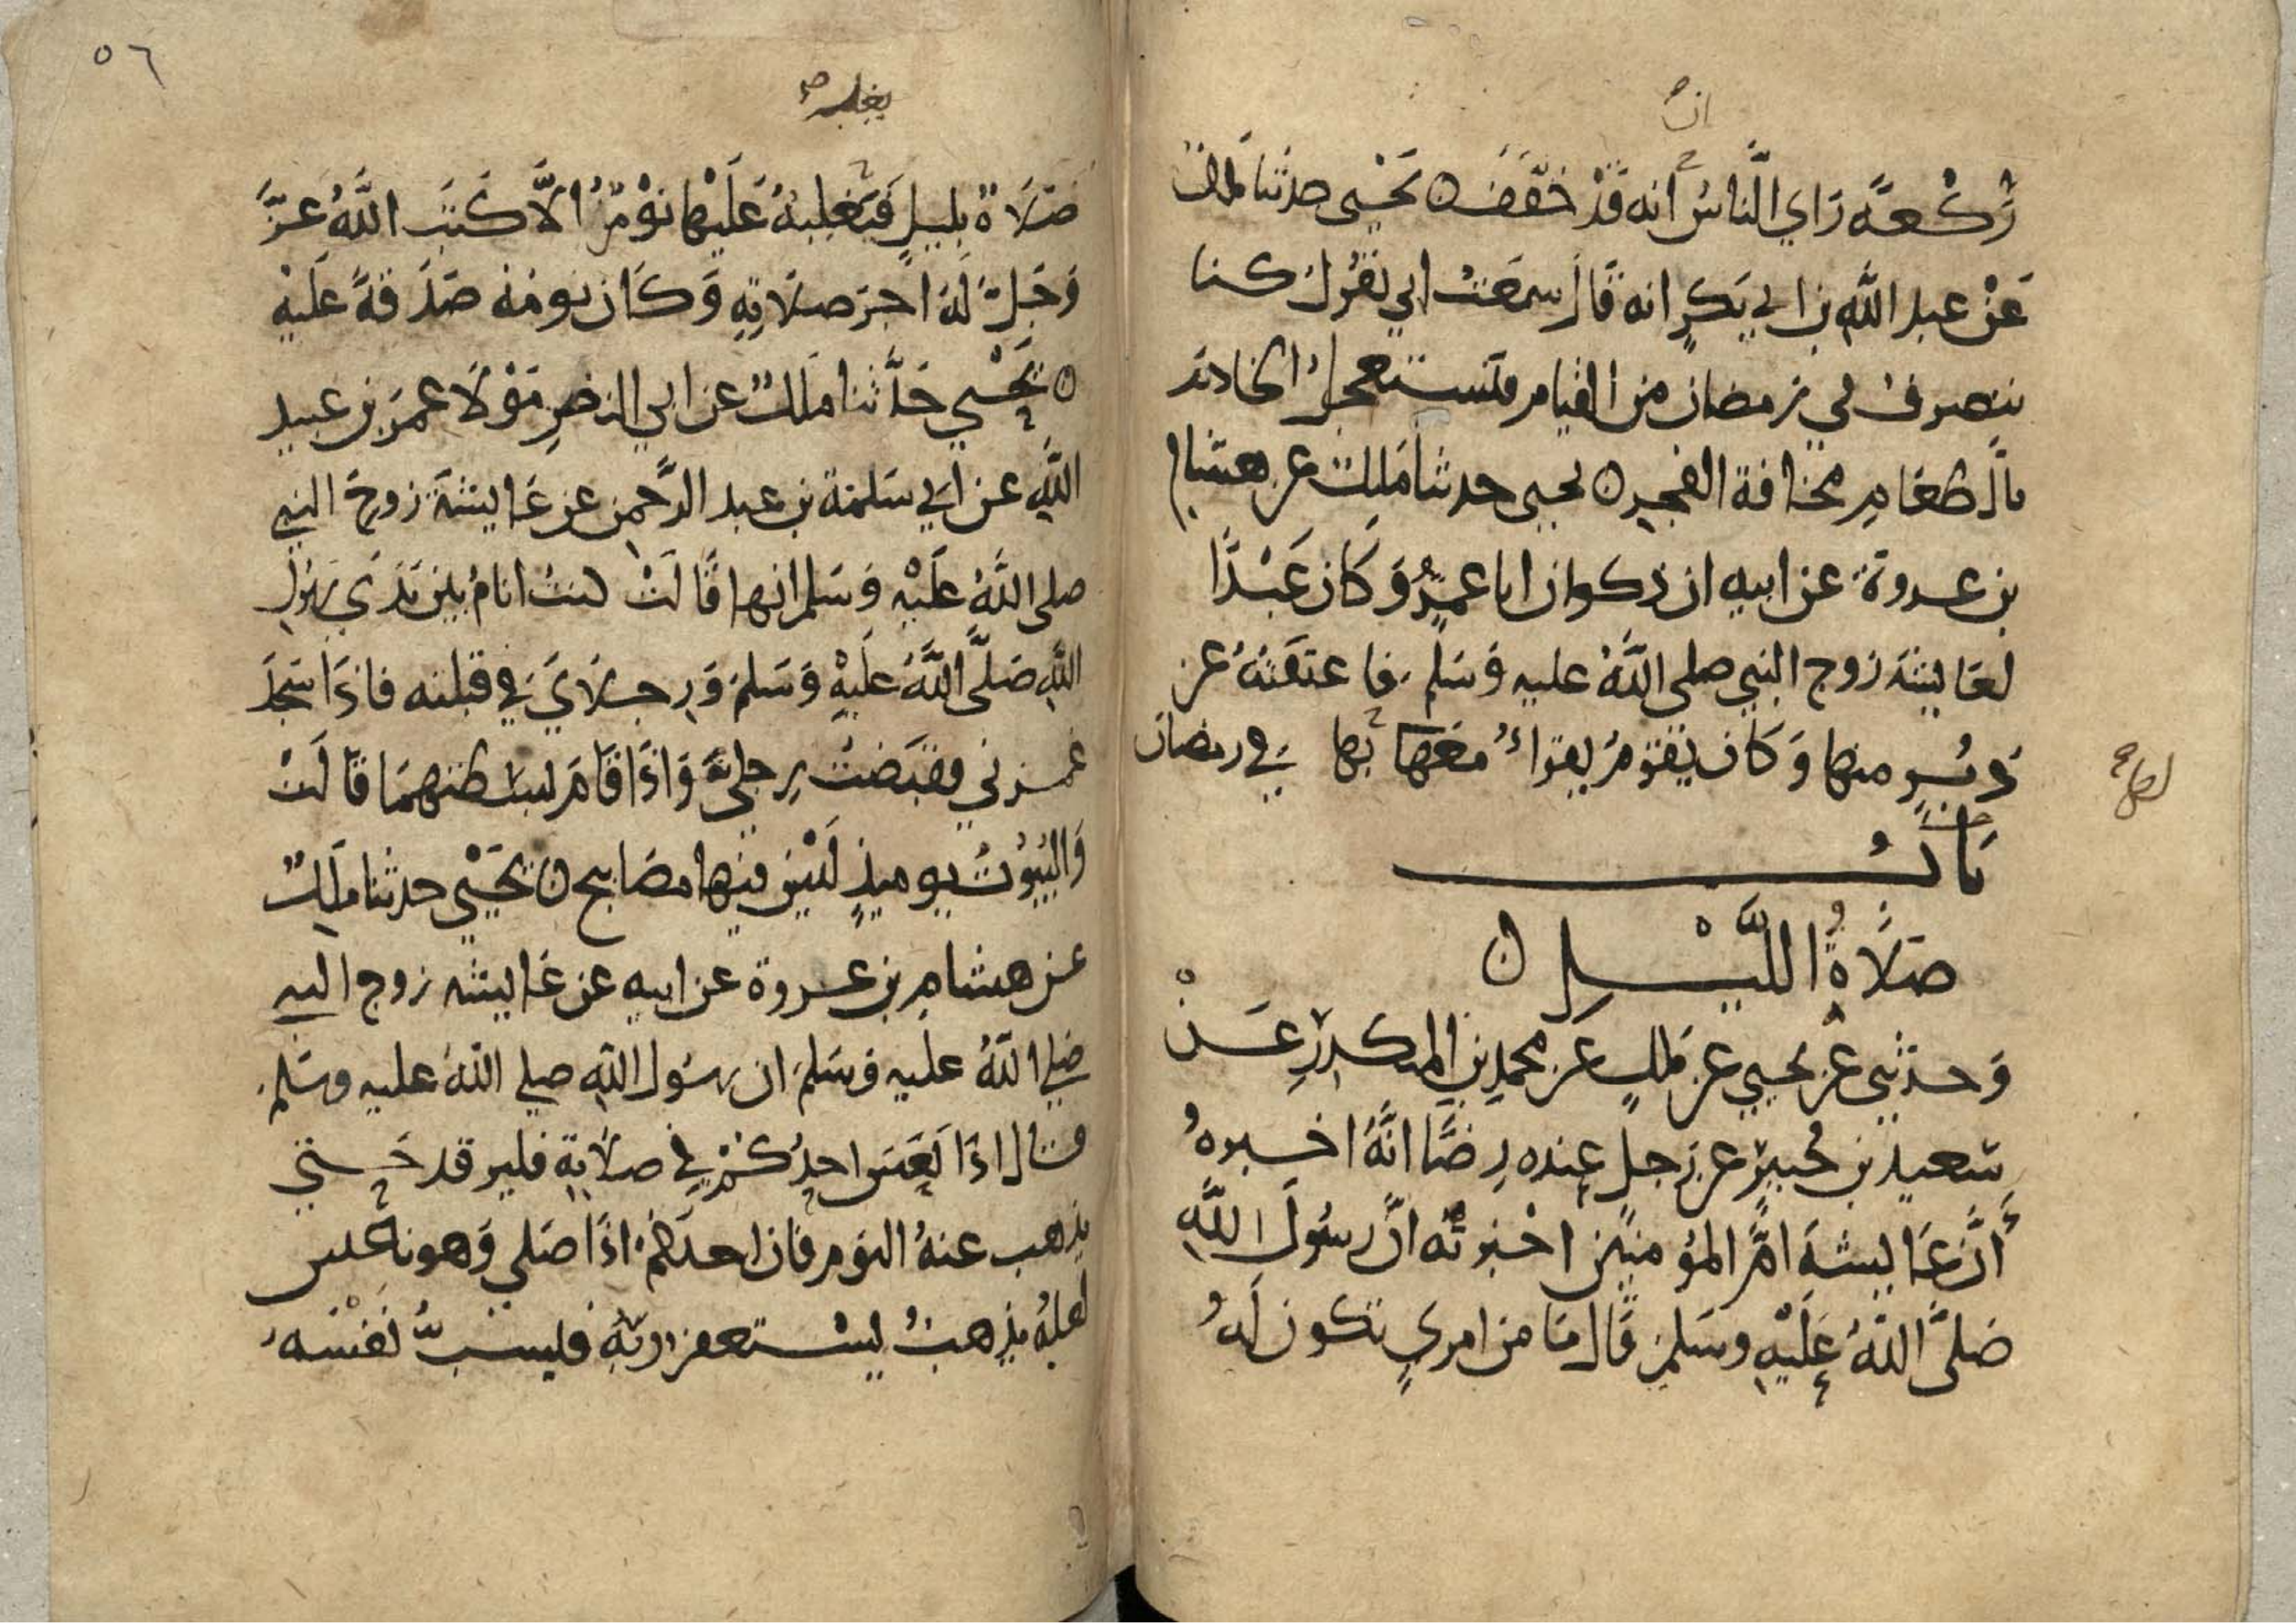 ان
رَكْعَةً رَاي النَّاسُ أنه قَدْ خَفَّفَ ه يَحْيى حدثنا مالك
عَنْ عبد اللَّهِ بن ابي بَكرٍ انه قَالَ سمعْتُ ابي يقُولُ كنا
ننصرف في رمضان من القيام فنستعجلُ الخادم
بالطعَامِ مخافة الفجر ه يحيى حدثنا مَلِك عن هشام
بن عروة عن ابيه ان ذكوان ابا عمرٍو وَكَان عَبْدًا
لعَايشة زوج النبي صلى اللَّهُ عليه وَسَلم فاعتقتهُ عن
دُبُرٍ منها وَكَان يقومُ يقراُ معها بها في رمضان
لها
بَابُ
صَلَاةُ اللَّيْلِ ه
وَحدثني عن يحيي عن مَلكٍ عن محمدِ بنِ المنكدرِ عَنْ
سَعيد بن جُبيرٍ عن رجلٍ عنده رِضًا انَّهُ اخبرهُ
أنَّ عَايشةَ امَّ المؤمنين اخْبرته انَّ رسُولَ اللَّهِ
صَلَّى اللَّهُ عَلَيْهِ وسَلم قَال مَا من امريٍ تكون لَهُ
٥٦
يغلبه
صَلَاةٌ بِليلٍ فَيَغلِبهُ عَلَيْها نوْمٌ الَّا كَتَبَ اللَّهُ عَزَّ
وَجَلَّ لَهُ اجرَ صلَاتِهِ وَكَان نومُهُ صَدَقةً عَلَيْهِ
ه يَحْيي حَدَّثنا مَلكٌ عن ابي النضرِ مَوْلَا عمرَ بن عبيد
اللَّهِ عن ابي سَلمة بن عبد الرَّحمن عن عَايشةَ زوجَ النبي
صلى اللَّهُ عَلَيْهِ وَسَلم انها قَالَتْ كنتُ انامُ بين يَدَيْ رسول
اللَّهِ صَلَّى اللَّهُ عَلَيْهِ وَسَلم وَرِجلَايَ في قبلته فاذَا سَجَدَ
غمزني فقبَضتُ رِجليَّ وَاذَا قَامَ بسطتهمَا قَالَتْ
وَالبُيُوتُ يوميذٍ لَيْسَ فيها مصَابيح ه يَحْيَى حدثنا مَلِكٌ
عن هشامِ بن عروة عن ابيه عن عَايشة زوج النبي
صَلى اللَّهُ عليه وَسَلم ان رسُول اللَّهِ صلى اللَّهُ عليه وسَلم
قال اذَا نَعَسَ احدُكُمْ في صلَاتِهِ فليرقد حَتي
يذهب عنهُ النوم فان احدَكُم اذَا صَلي وَهو ناعس
لعلهُ يذهبُ ليستغفر ربّهُ فليسبُّ نفْسَهُ